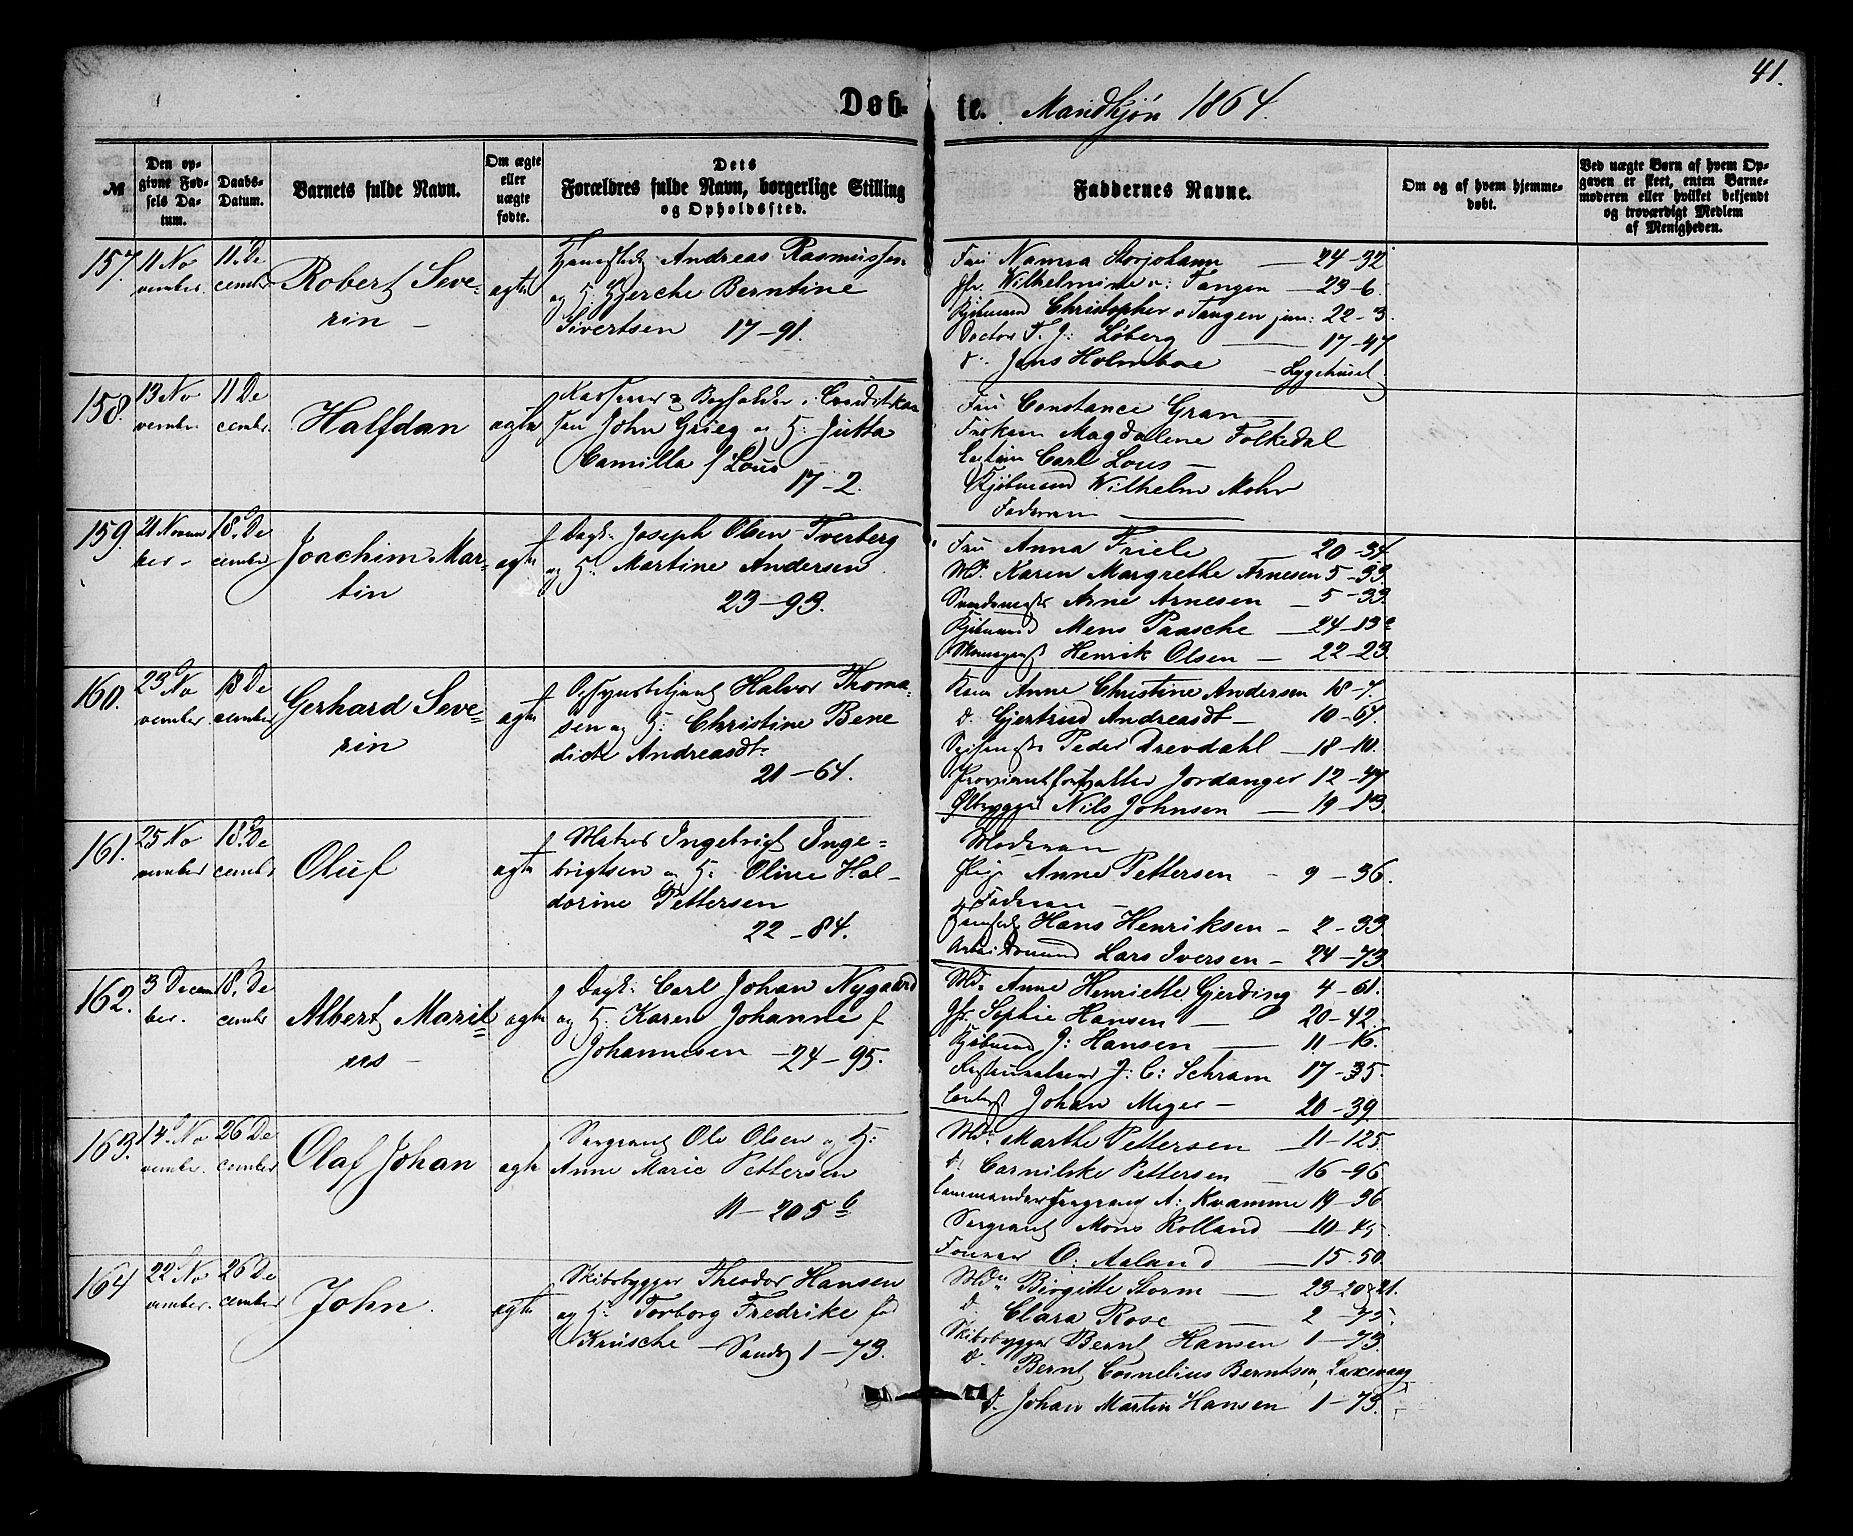 41.
Døb- te. Mandkjøn 1864.
№
Den op-
givne Fød-
sels Da-
tum.
Daabs-
Datum.
Barnets fulde Navn.
Om ægte
eller
uægte
fødte.
Dets
Forældres fulde Navn, borgerlige Stilling
og Opholdssted.
Faddernes Navne.
Om og af hvem hjemme-
døbt.
Ved uægte Børn af hvem Op-
gaven er skeet, enten Barne-
moderen eller hvilket bekjendt
og troværdigt Medlem
af Menigheden.
157.
11 No
vember.
11. De
cember
Robert Seve-
rin –
ægte
Andreas Rasmussen
og H: Gjerche Berntine
Sivertsen 17–91.
Fru Nanna Storjohann — 24–32
Jfr. Wilhelmine v: Tangen — 23–6.
Kjøbmand Christopher v Tangen jun: 22–3.
Doctor T. J: Løberg — 17–47
d. Jens Holmboe – Sygehuset
158.
13 No
vember.
11 De
cember.
Halfdan
ægte
Kasserer & Bogholder i Creditkas
sen John Grieg og H: Jutta
Camilla f Lous
17–2.
Fru Constance Gran —
Frøken Magdalene Folkedal
Captein Carl Lous –
Kjøbmand Wilhelm Mohr
Faderen —
159.
21 Novem
ber –
18. De
cember
Joachim Mar-
tin
ægte
Dagk: Joseph Olsen Tverberg
og H: Martine Andersen
23–93.
Fru Anna Friele — 20–34
Md. Karen Margrethe Arnesen 5–33
Arne Arnesen — 5–33
Kjøbmand Mens Paasche — 24–13 c
Henrik Olsen — 22–23.
160.
23 No
vember.
18 De
cember
Gerhard Seve-
rin
ægte
Opsynsbetjent Halvor Thoma-
sen og H: Christine Bene
dicte Andreasdt:
21–64.
Kone Anne Christine Andersen 18–7.
d. Gjertrud Andreasdt — 10–64.
Peder Drevdahl — 18–10.
Proviantforvalter Jordanger 12–47
Ølbrygger Nils Johnsen — 19–13.
161.
25 No
vember
18. De
cember
Oluf
ægte
Matros Ingebrigt Inge-
brigtsen og H: Oline Hal-
dorine Pettersen
22–84.
Moderen
Pige Anne Pettersen – 9–36.
Faderen –
Hans Henriksen – 2–33.
Arbeidsmand Lars Iversen – 24–73.
162.
3 Decem
ber.
18. De
cember
Albert Mari-
us –
ægte
Dagk: Carl Johan Nygaard
og H: Karen Johanne f
Johannesen – 24–95.
Md. Anne Henriette Gjerding 4–61.
Jfr. Sophie Hansen — 20–42.
Kjøbmand J: Hansen — 11–16.
J: C: Schram 17–35.
Johan Meyer – 20–39
163.
14. No
vember.
26 De
cember
Olaf Johan
ægte
Sergeant Ole Olsen og H:
Anne Marie Pettersen
11–205 b
Md. Marthe Pettersen — 11–125.
d: Pettersen — 16–96.
Commandersergeant A: Kvamme 19–36
Sergeant Mons Rolland — 10–45
Fourer O: Aaland — 15–50.
164
22 No
vember.
26 De
cember
John.
ægte
Skibsbygger Theodor Hansen
og H: Torborg Fredrikke fød
Krüsche – Sandv 1–73.
Md. Birgitte Storm — 23–20&21.
d. Clara Rose — 2–75.
Skibsbygger Bernt Hansen 1–73
d. Bernt Cornelius Berntsen, Laxevaag
d. Johan Martin Hansen 1–73.